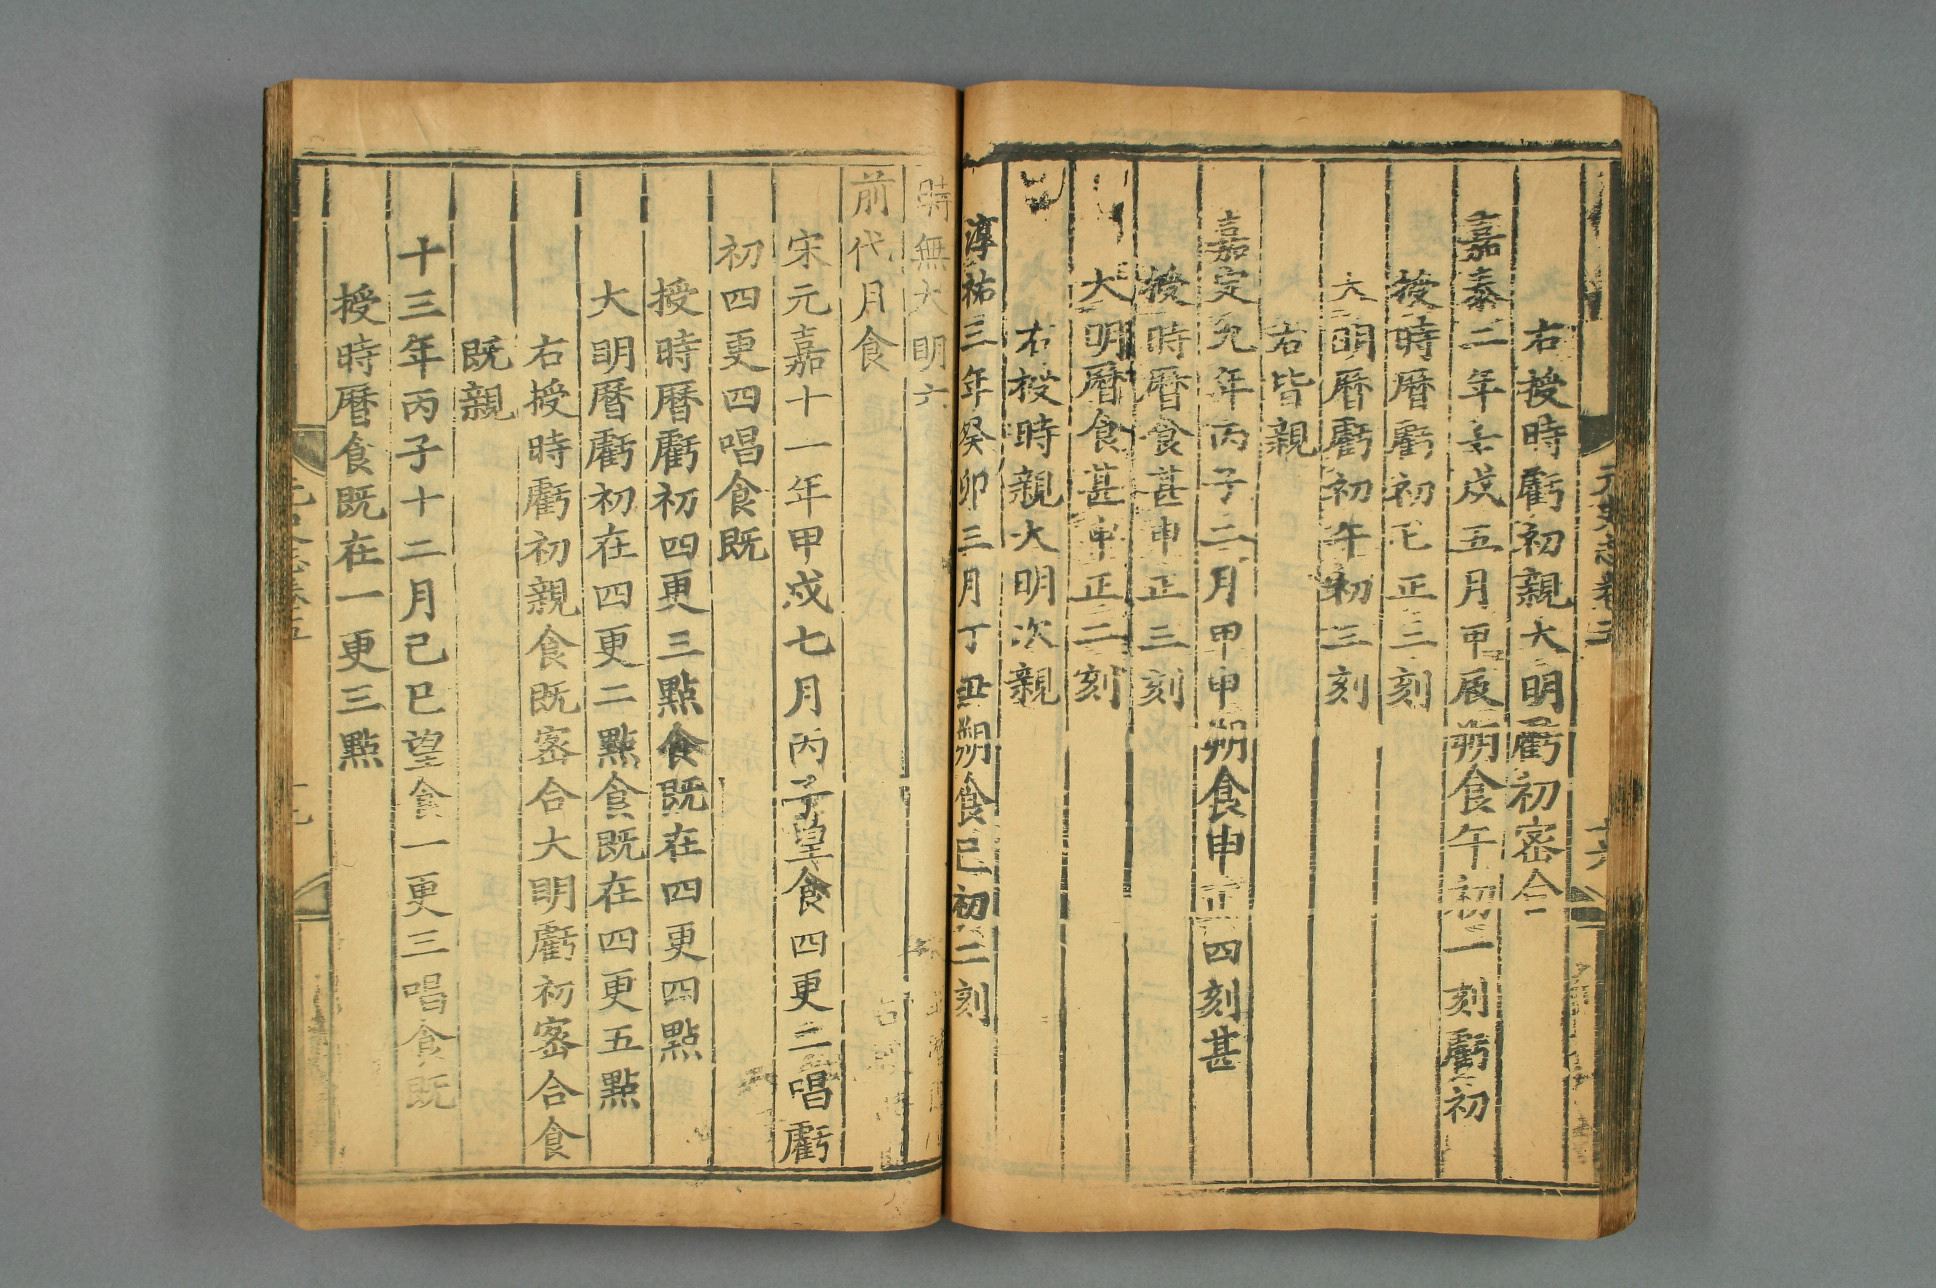 右授時虧初親大明虧初密合
嘉泰二年壬戌五月甲辰朔食午初一刻虧初
授時曆虧初巳正三刻
大明曆虧初午初三刻
右皆親
嘉定九年丙子二月甲申朔食申正四刻甚
授時曆食甚申正三刻
大明曆食甚申正二刻
右授時親大明次親
淳祐三年癸卯三月丁丑朔食巳初二刻
元史志卷五
十六
時無大明六
前代月食
宋元嘉十一年甲戌七月丙子望食四更二唱虧
初四更四唱食既
授時曆虧初四更三點食既在四更四點
大明曆虧初在四更二點食既在四更五點
右授時虧初親食既密合大明虧初密合食
既親
十三年丙子十二月己巳望食一更三唱食既
授時曆食既在一更三點